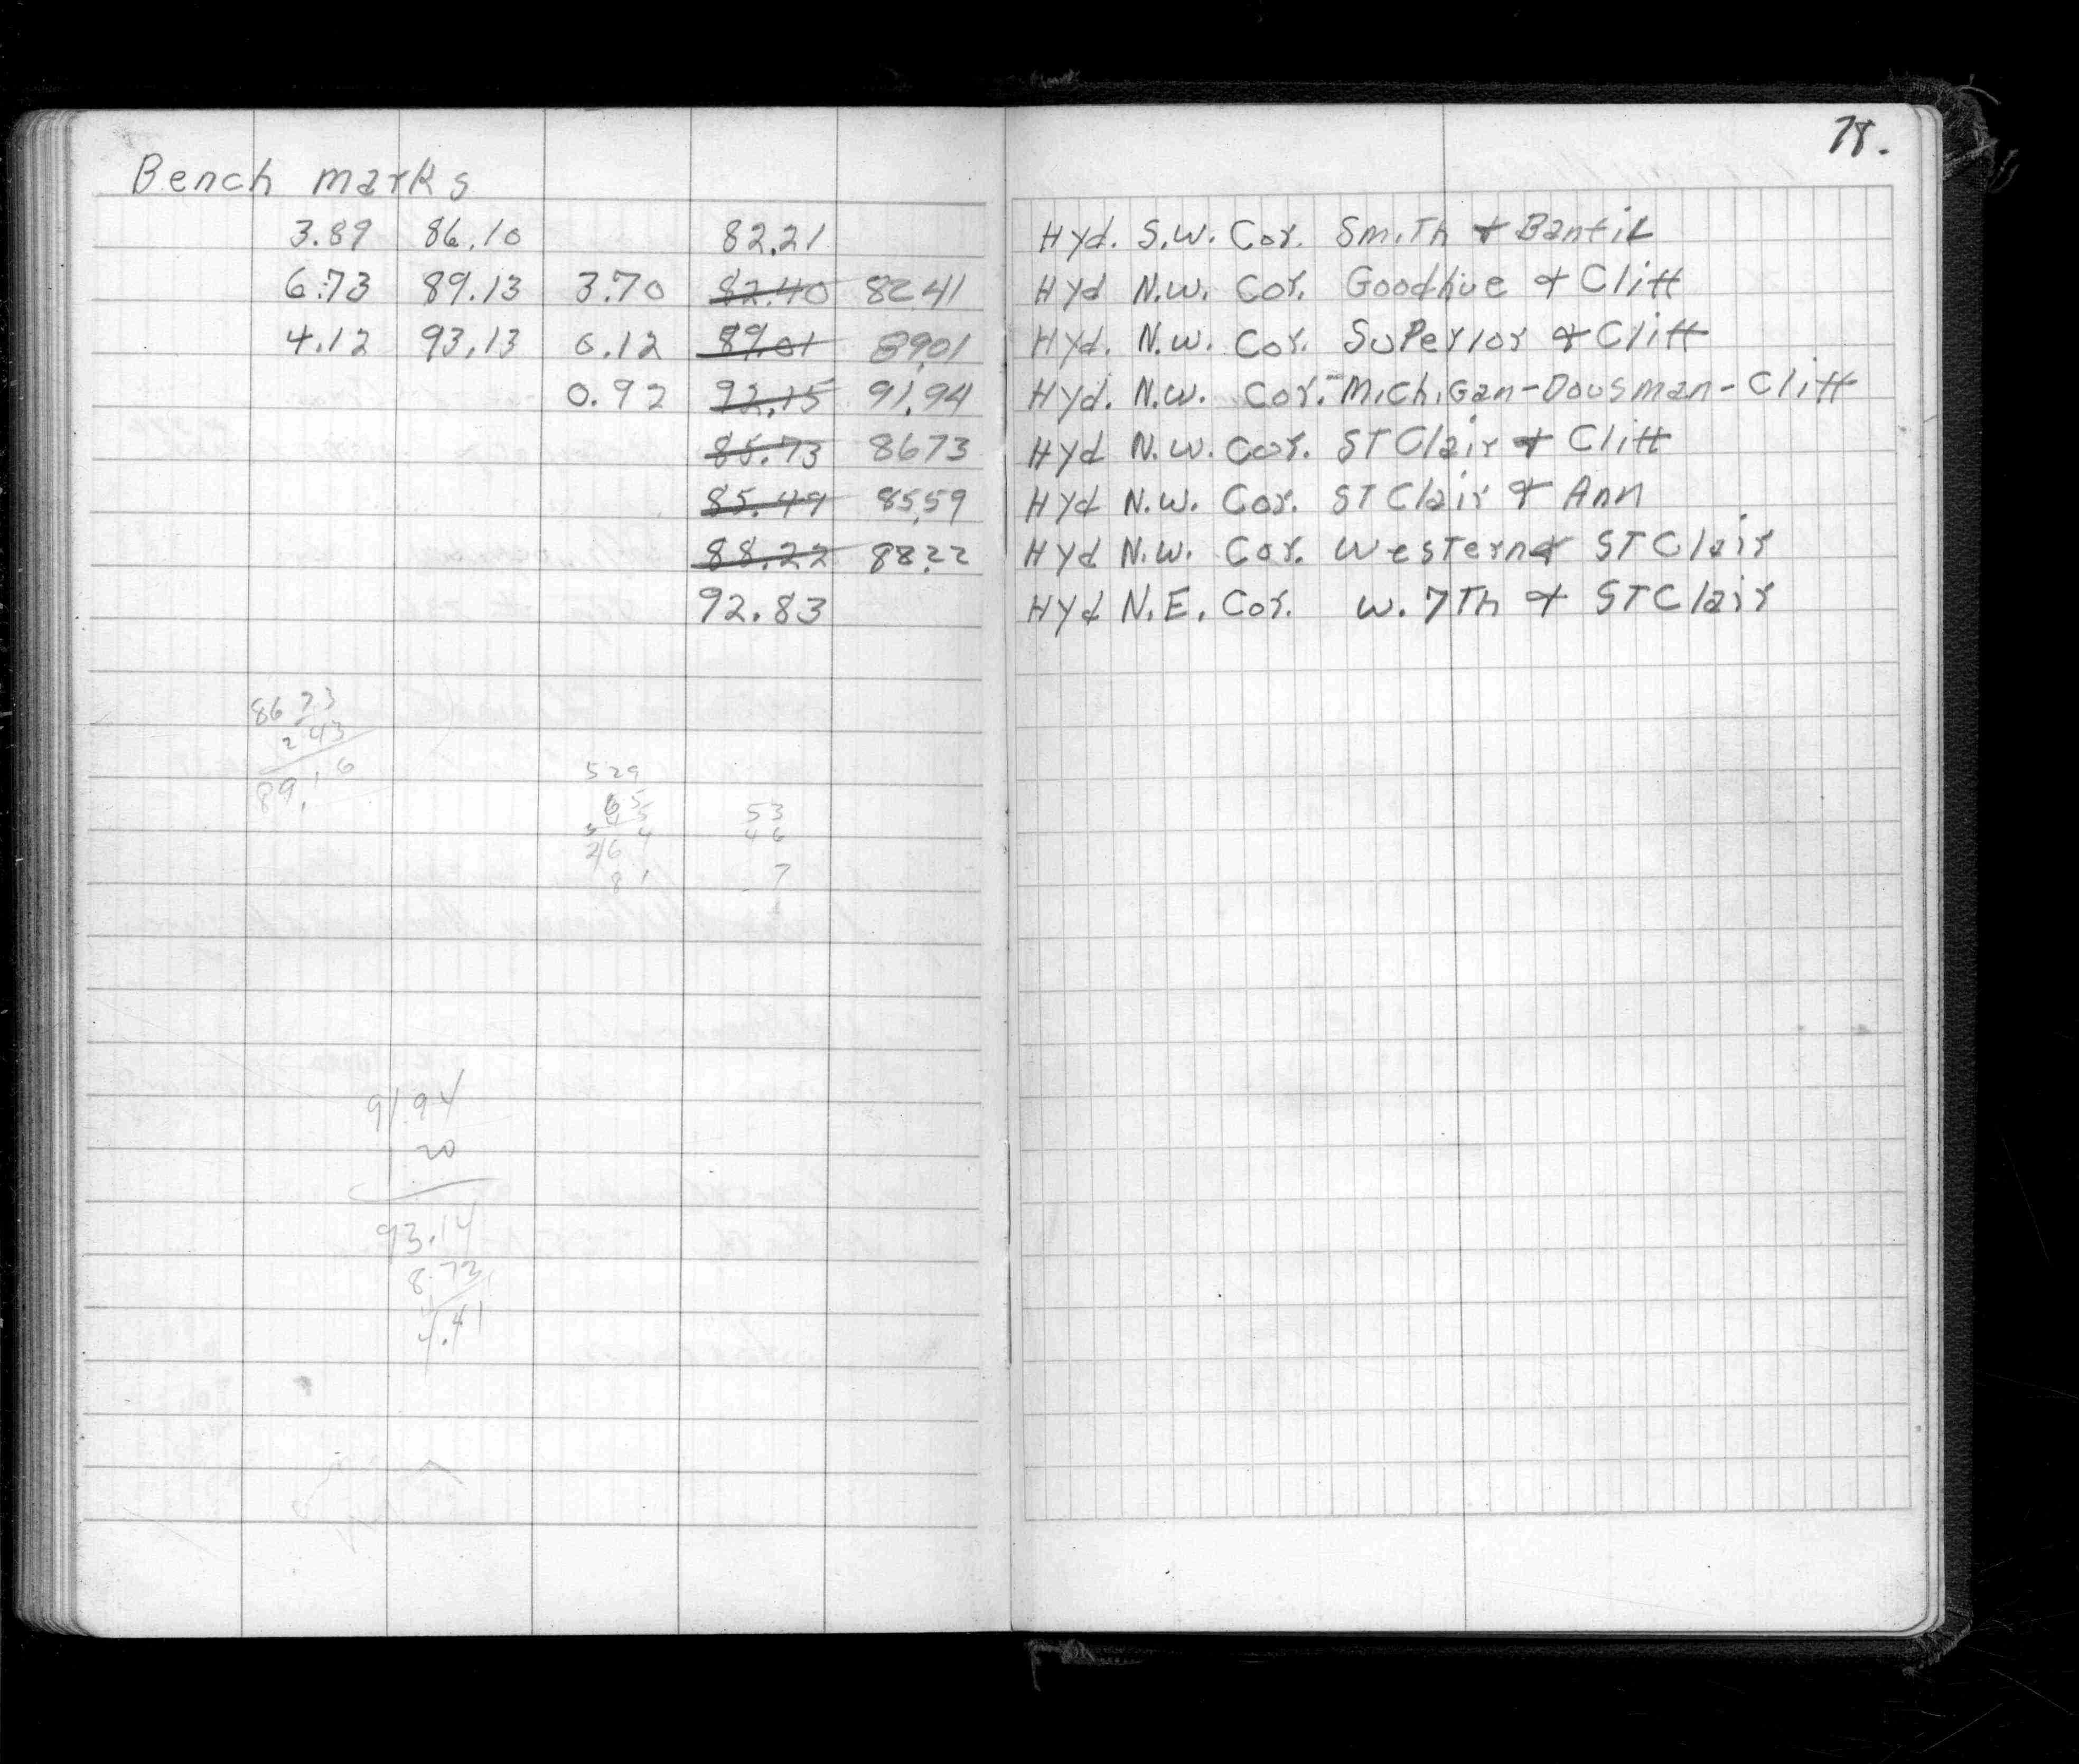 78.
Bench marks
3.89 86.10 82.21 Hyd. S.W. Cor. Smith & Banfil
6.73 89.13 3.70 82.40 82.41 Hyd N.W. Cor. Goodhue & Cliff
4.12 93.13 0.12 89.01 89.01 Hyd. N.W. Cor. Superior & Cliff
0.92 92.15 91.94 Hyd. N.W. Cor. Michigan-Dousman-Cliff
85.73 8673 Hyd N.W. Cor. ST Clair & Cliff
85.49 85.59 Hyd N.W. Cor. ST Clair & Ann
88.22 88.22 Hyd N.W. Cor. Western & ST Clair
92.83 Hyd N.E. Cor. W. 7Th & ST Clair
86 73
2 43
89.16
529
65
53
46
7
91.94
20
93.14
8.73
4.41